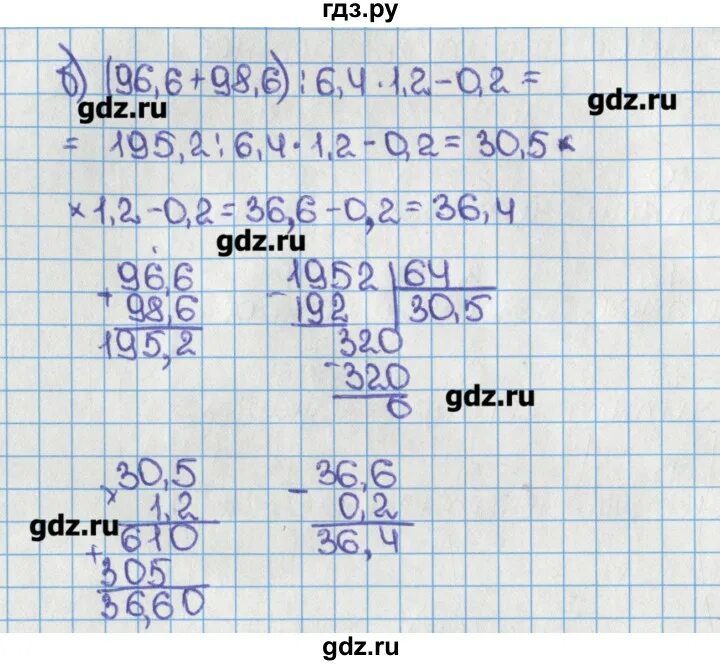 гдз.ру
б) (96,6+98,6):6,4·1,2-0,2=
gdz.ru
gdz.ru
= 195,2:6,4·1,2-0,2=30,5×
×1,2-0,2=36,6-0,2=36,4
gdz.ru
96,6
+ 98,6
195,2
- 1952 | 64
192 | 30,5
320
- 320
0
gdz.ru
30,5
× 1,2
gdz.ru
610
+ 305
36,60
- 36,6
0,2
36,4
gdz.ru